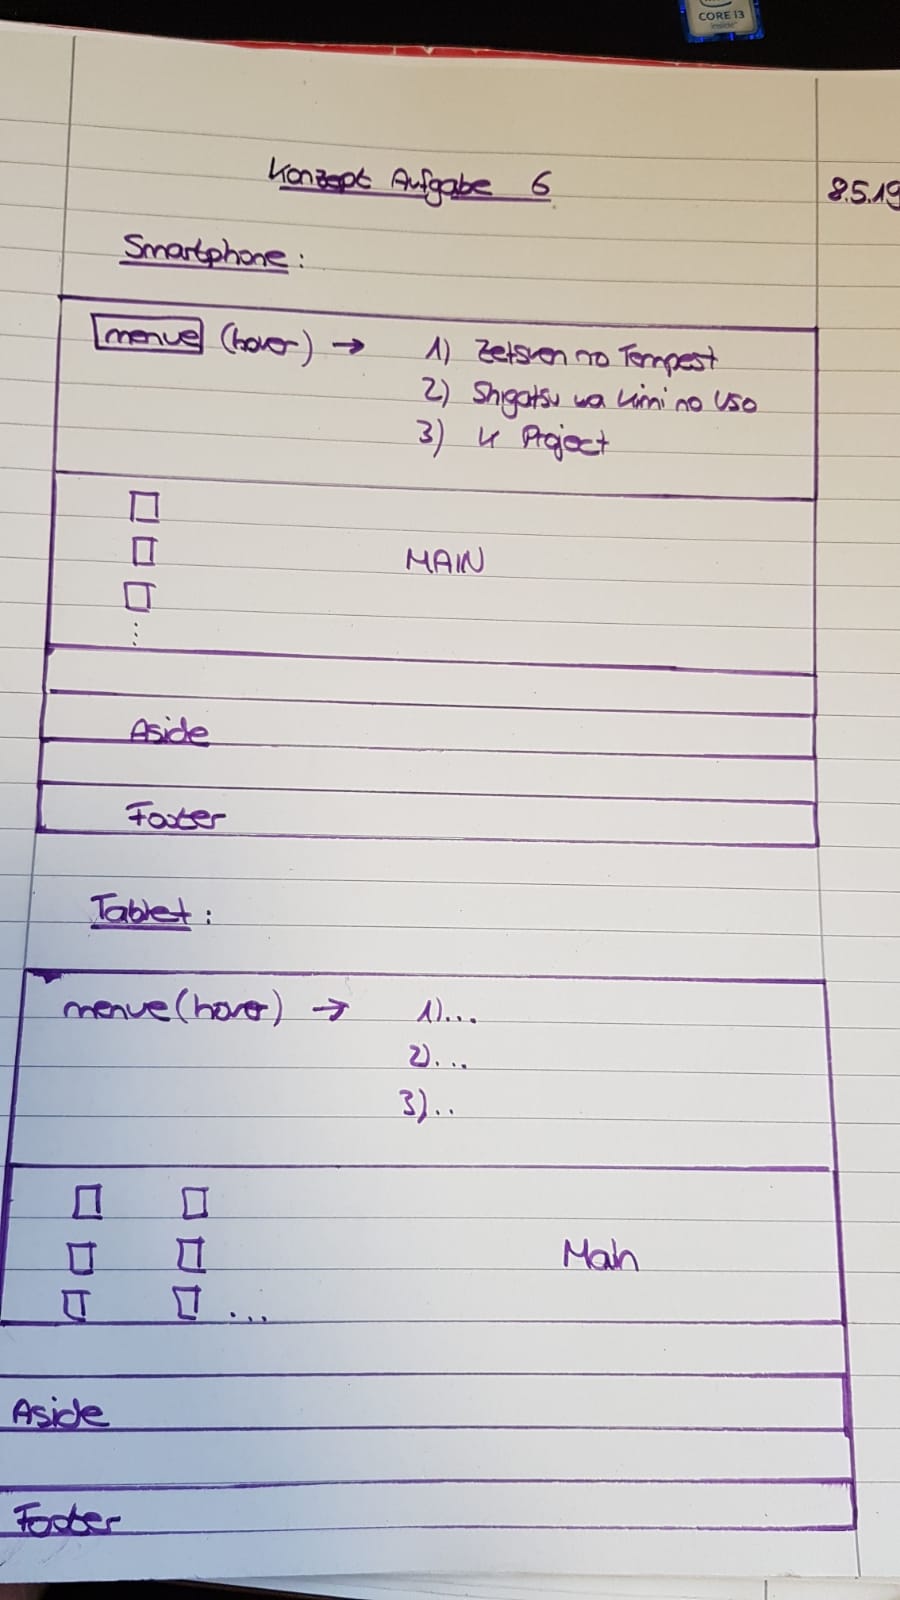 CORE i3
inside™
Konzept Aufgabe 6
8.5.19
Smartphone:
menue (hover) → 1) Zetsuen no Tempest
2) Shigatsu wa kimi no Uso
3) K Project
MAIN
⋮
Aside
Footer
Tablet:
menue (hover) → 1)...
2)...
3)..
Main
...
Aside
Footer